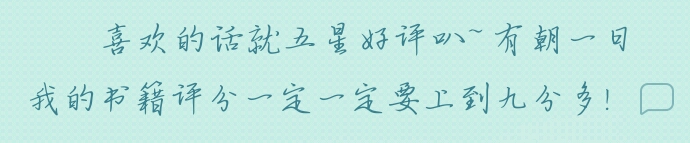 喜欢的话就五星好评叭~有朝一日
我的书籍评分一定一定要上到九分多!